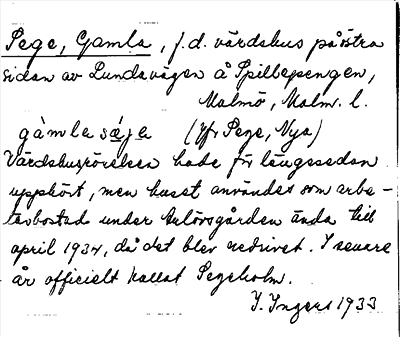 Sege, Gamla, f.d. värdshus på östra
sidan av Lundavägen å Spillepengen,
Malmö, Malm. l.
gàmla sǽjə (Jfr Sege, Nya)
Värdshusrörelsen hade för längesedan
upphört, men huset användes som arbe-
tarbostad under Hulörsgården ända till
april 1934, då det blev nedrivet. I senare
år officielt kallat Segeholm.
I. Ingers 1933